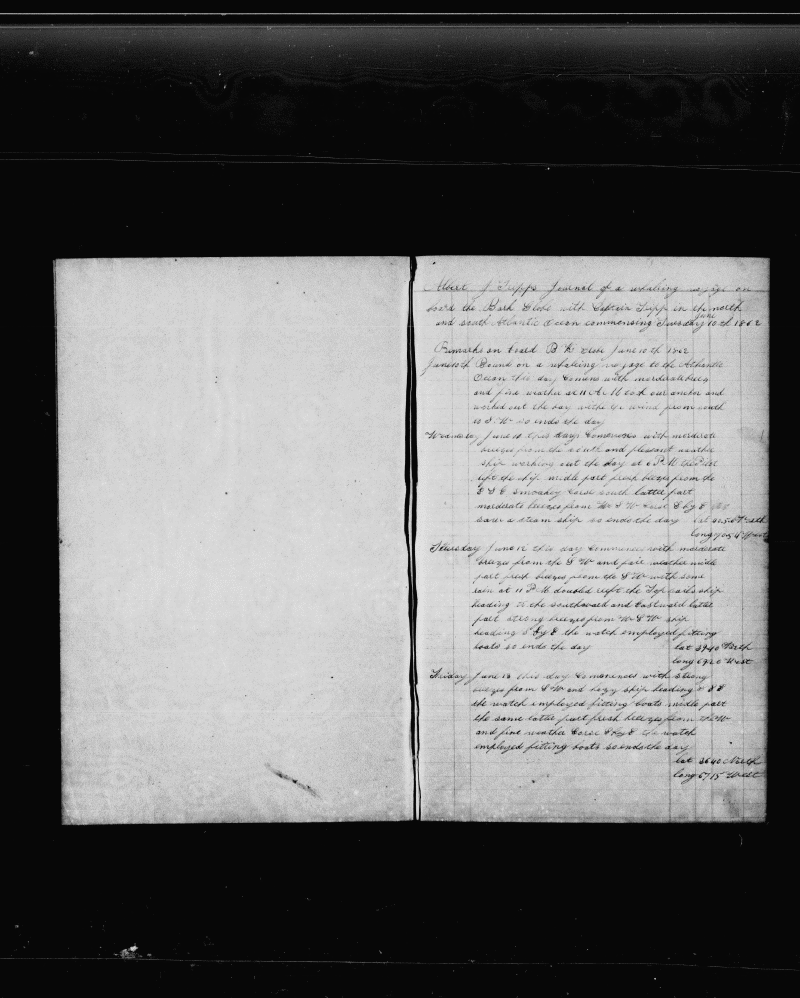 Albert J Tripps Journal of a whaling voyage on
board the Bark Globe with Captain Tripp in the north
and south Atlantic Ocean commensing Tuesday June 10 th 1862
Remarks on board B k Globe June 10 th 1862
June 10 th Bound on a whaling voyage to the Atlantic
Ocean this day Comens with morderate
and fine weather at 11 A M our anchor and
worked out the bay withe the wind from south
to S W so ends the day
Wednesday June 11 this day Commences with morderate
breezes from the south and pleasant weather
ship working out the day at 6 P M the Pilot
left the ship midle part fresh breezes from the
S S E smoakey Corse south latter part
morderate breezes from W S W Corse S by E
saw a steam ship so ends the day lat North
long West
Thursday June 12 this day Commences with morderate
breezes from the S W and fair weather midle
part fresh breezes from the S W with some
rain at 11 P M doubled reeft the Topsails ship
heading to the southward and Eastward latter
part strong breezes from W S W ship
heading S by E the watch employed fitting
boats so ends the day lat 39 40 North
long 69 20 West
Friday June 13 this day Commences with strong
breezes from S W and hazy ship heading S S E
the watch employed fitting boats midle part
the same latter part fresh breezes from the W
and fine weather Corse S by E the watch
employed fitting boats so ends the day
lat 36 40 North
long 67 15 West